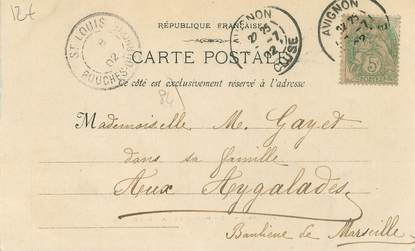 12€
RÉPUBLIQUE FRANÇAISE
CARTE POSTALE
Ce côté est exclusivement réservé à l'adresse
ST LOUIS
BOUCHES
02
AVIGNON
2E 25
-7
02
AVIGNON
-7
02
5
84
Mademoiselle M. Gayet
dans sa famille
Aux Aygalades
Banlieue de Marseille